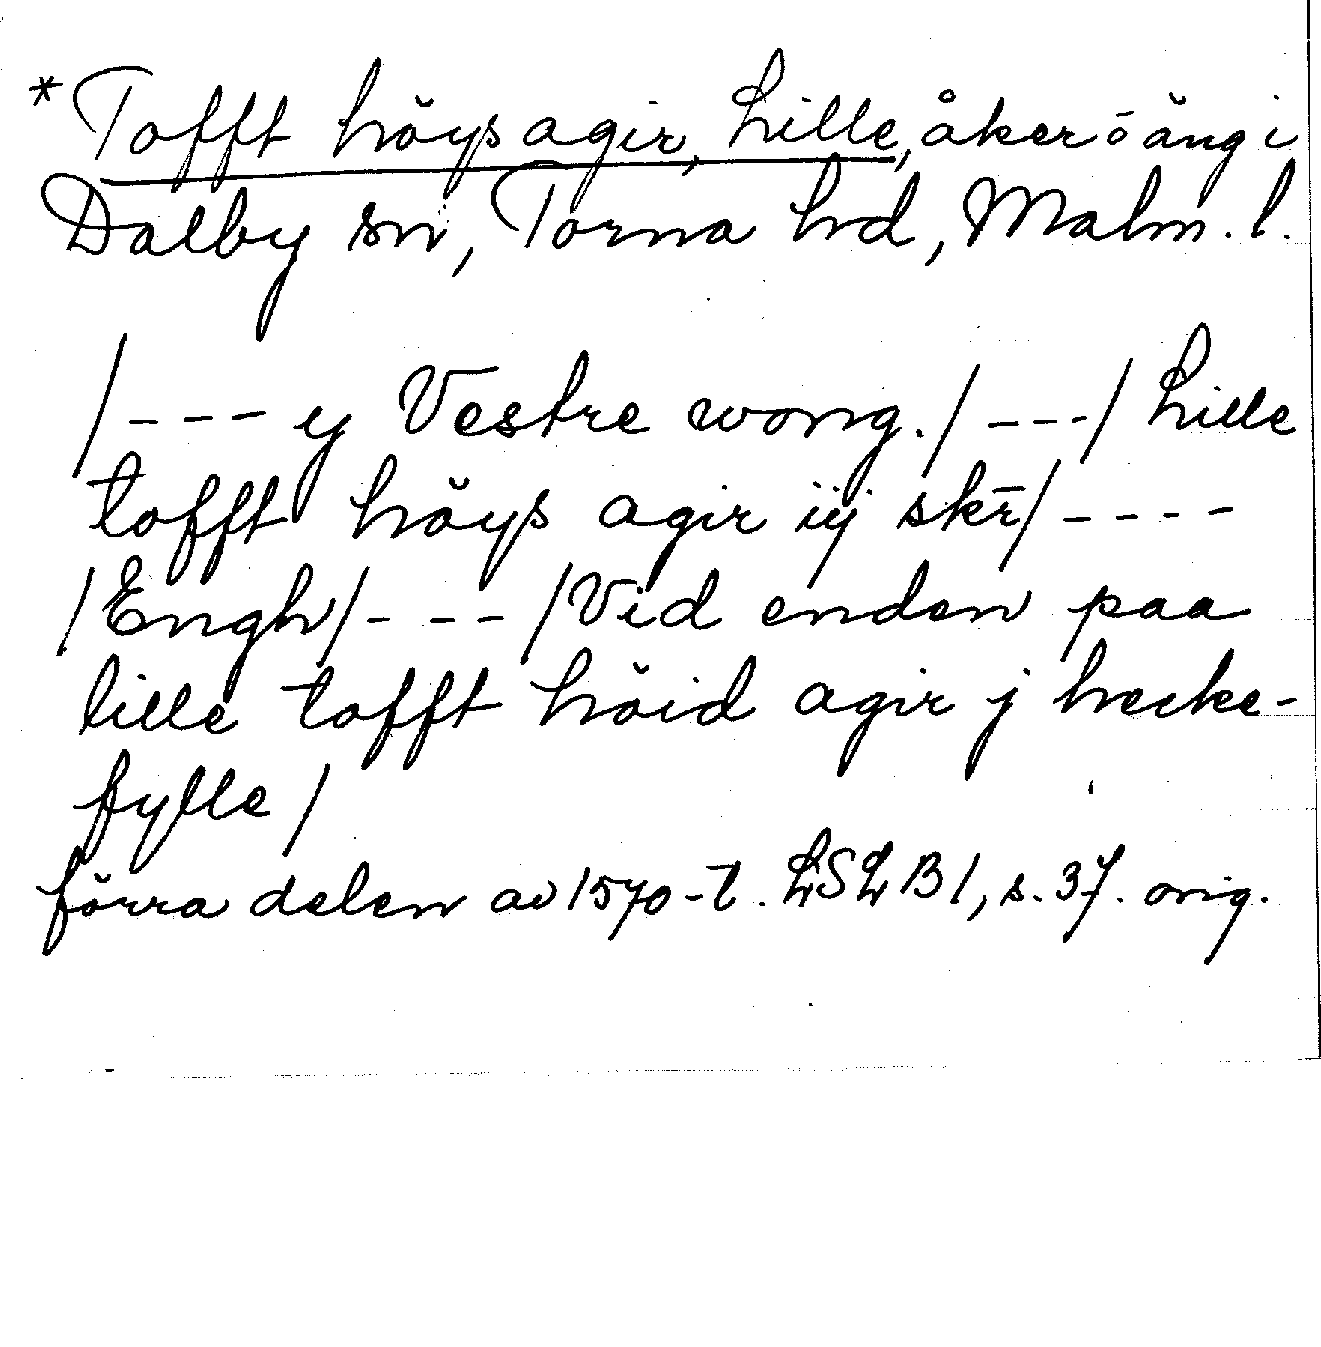 *Tofft höys agir, Lille, åker o äng i
Dalby sn, Torna hd, Malm. l.
/--- y Vestre wong./---/ Lille
tofft höys agir iij skr̄/----
/Engh/---/Vid enden paa
lille tofft höid agir j hecke-
fylle/
förra delen av 1570-t. LSLB1, s. 37. orig.